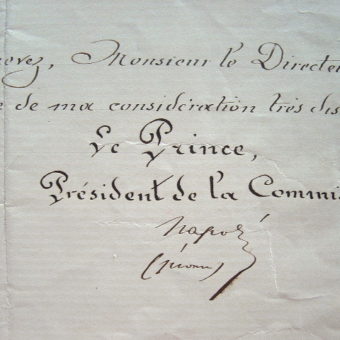 oyez, Monsieur le Directe
e de ma considération très dis
Le Prince,
Président de la Commi
Napolé